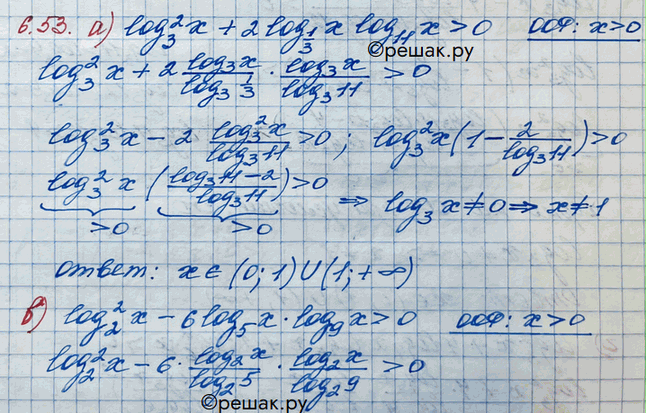 6.53. а) log₃²x + 2 log_{1/3} x log₁₁ x > 0   ООФ: x>0
©решак.ру
log₃²x + 2 (log₃x)/(log₃ 1/3) · (log₃x)/(log₃11) > 0
log₃²x − 2 (log₃²x)/(log₃11) > 0; log₃²x (1 − 2/(log₃11)) > 0
log₃²x ((log₃11 − 2)/(log₃11)) > 0
>0 >0 ⇒ log₃x ≠ 0 ⇒ x ≠ 1
ответ: x ∈ (0; 1) ∪ (1; +∞)
б) log₂²x − 6 log₅x · log₉x > 0   ООФ: x > 0
log₂²x − 6 · (log₂x)/(log₂5) · (log₂x)/(log₂9) > 0
©решак.ру